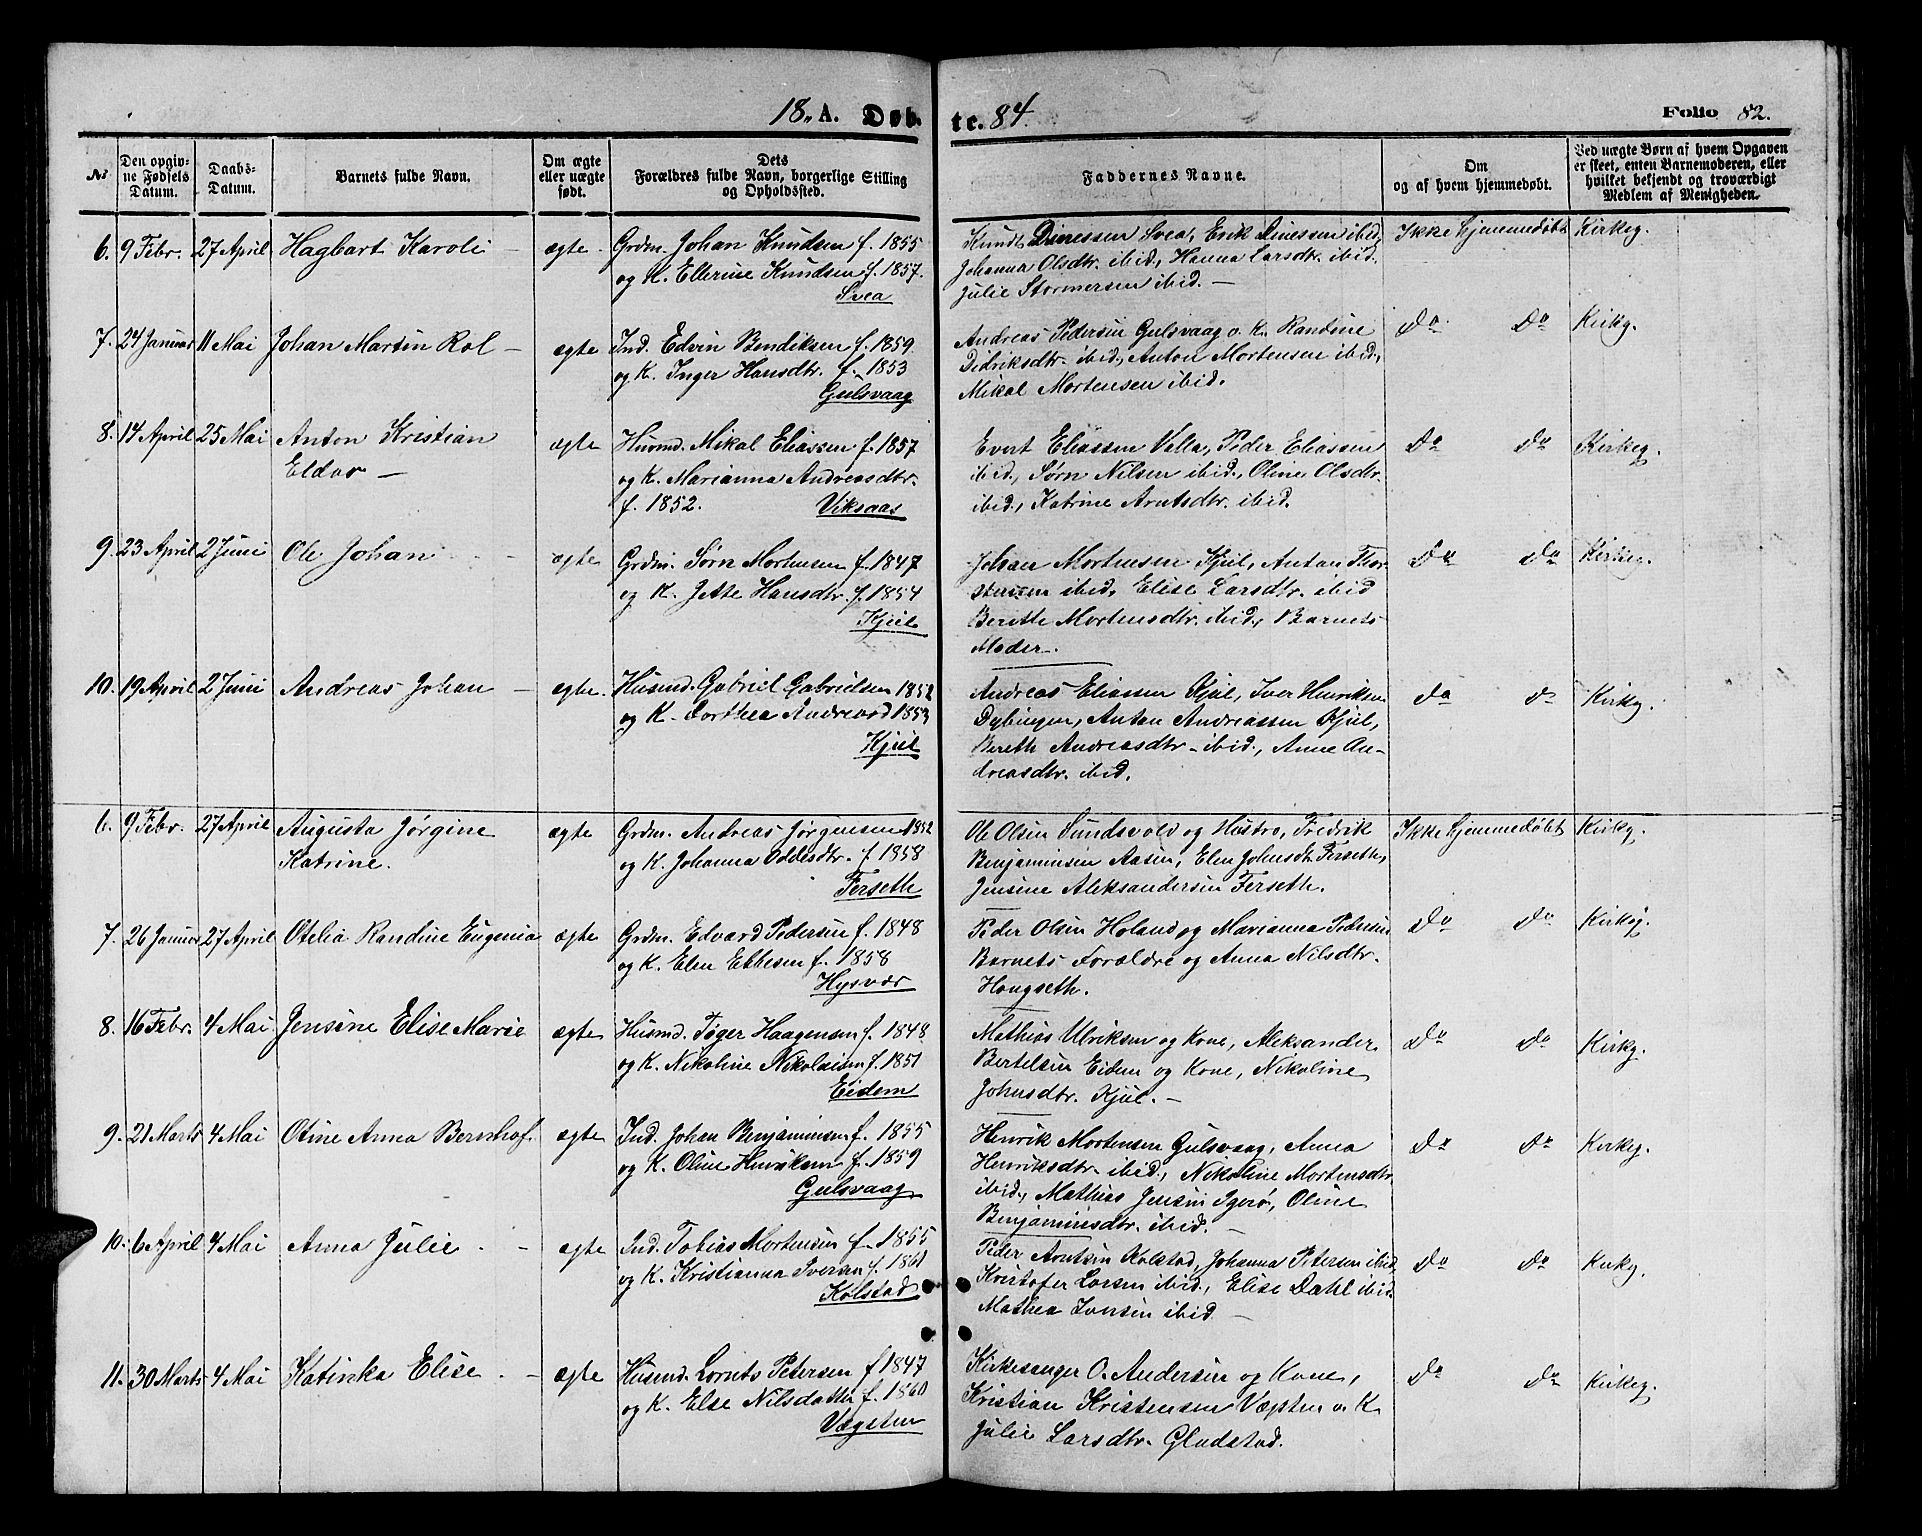 18 A. Døb-
te. 84.
Folio 82.
No
Den opgiv-
ne Fødsels
Datum.
Daabs-
Datum.
Barnets fulde Navn.
Om ægte
eller uægte
født.
Dets
Forældres fulde Navn, borgerlige Stilling
og Opholdssted.
Faddernes Navne.
Om
og af hvem hjemmedøbt.
Ved uægte Børn af hvem Opgaven
er skeet, enten Barnemoderen, eller
hvilket bekjendt og troværdigt
Medlem af Menigheden.
6. 9 Febr. 27 April Hagbart Karoli – ægte. Grdm. Johan Knudsen f. 1855
og K. Ellerine Knudsen f. 1857.
Svea
Knudt Dinessen Svea, Erik Dinessen ibid,
Johanna Olsdtr. ibid, Hanna Larsdtr. ibid.
Julie Stormersen ibid. –
Ikke hjemmedøbt Kirkeg.
7. 24 Januar 11 Mai Johan Martin Rol – ægte Ind. Edvin Bendiksen f. 1859.
og K. Inger Hansdtr. f. 1853
Gulsvaag
Andreas Pedersen Gulsvaag o. K. Randine
Didriksdtr. ibid, Anton Mortensen ibid,
Mikal Mortensen ibid.
Do Do Kirkg.
8. 14 April 25 Mai Anton Kristian
Eldar –
ægte Husmd. Mikal Eliassen f. 1857
og K. Marianna Andreasdtr.
f. 1852. Viksaas
Evert Eliassen Valla, Peder Eliassen
ibid, Sørn Nilsen ibid., Oline Olsdtr.
ibid, Katrine Arntsdtr. ibid.
Do Do Kirkeg.
9. 23 April 2 Juni Ole Johan – ægte Grdm. Sørn Mortensen f. 1847
og K. Jette Hansdtr. f. 1854
Kjul
Johan Mortensen Kjul, Antan Thor-
stensen ibid, Elise Larsdtr. ibid
Berethe Mortensdtr. ibid, Barnets
Moder.
Do Do Kirkeg.
10. 19 April 2 Juni Andreas Johan – ægte. Husmd. Gabriel Gabrielsen 1852
og K. Dorthea Andreasd 1853
Kjul
Andreas Eliassen Kjul, Iver Henriksen
Dybingen, Antan Andreassen Kjul,
Bereth Andreasdtr. ibid., Anne An-
dreasdtr. ibid.
Do Do Kirkg.
6. 9 Febr. 27 April Augusta Jørgine
Katrine.
ægte Grdm. Andreas Jørgensen 1852
og K. Johanna Oddesdtr. f 1858
Ferseth
Ole Olsen Sundsvold og Hustro, Fredrik
Benjaminsen Aasen, Elen Johnsdt Ferseth,
Jensine Aleksandersen Ferseth.
Ikke hjemmedøbt Kirkg.
7. 26 Januar 27 April Otelia Randine Eugenia ægte Grdm. Edvard Pedersen f. 1848
og K. Elen Ebbesen f. 1858
Hysvær
Peder Olsen Holand og Marianna Pedersen
Barnets Forældre og Anna Nilsdtr.
Hongseth.
Do Do Kirkg.
8. 16 Febr. 4 Mai Jensine Elise Marie ægte Husmd. Tøger Haagensen f. 1848
og K. Nikoline Nikolaisen f. 1851
Eidem
Mathias Ulriksen og Kone, Aleksander
Bertelsen Eidem og Kone, Nikoline
Johnsdtr. Kjul. –
Do Do Kirkg.
9. 21 Marts 4 Mai Otine Anna Bernhof. ægte Ind. Johan Benjaminsen f. 1855
og K. Oline Henriksen f. 1859
Gulsvaag
Henrik Mortensen Gulsvaag, Anna
Henriksdtr. ibid, Nikoline Mortensdtr
ibid, Mathias Jensen Igerø, Oline
Benjaminsdtr. ibid. –
Do Do Kirkg.
10. 6 April 4 Mai Anna Julie – ægte Ind. Tobias Mortensen f. 1855
og K. Kristianna Iversen f. 1861
Kolstad
Peder Arntsen Kolstad, Johanna Petersen ibid,
Kristofer Larsen ibid, Elise Dahl ibid.
Mathea Jonsen ibid –
Do Do Kirkg.
11. 30 Marts 4 Mai Katinka Elise – ægte Husmd. Lornts Petersen f 1847
og K. Else Nilsdatter f. 1860
Vægsten
Kirkesanger O. Andersen og Kone,
Kristian Kristensen Væpten o. K
Julie Larsdtr. Gladstad.
Do Do Kirkeg.